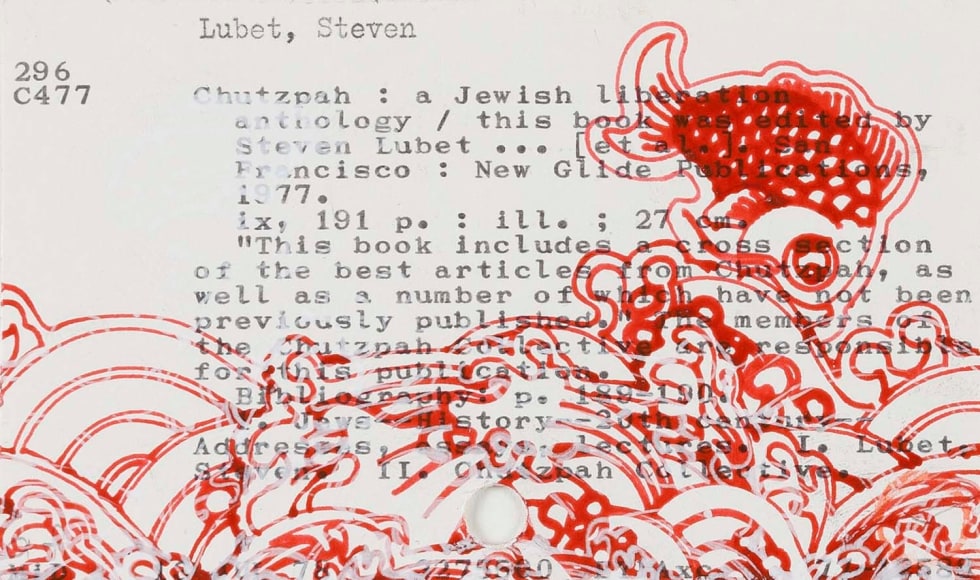 Lubet, Steven
296
C477
Chutzpah : a Jewish liberation
anthology / this book was edited by
Steven Lubet ... [et al.]. San
Francisco : New Glide Publications,
1977.
ix, 191 p. : ill. ; 27 cm.
"This book includes a cross section
of the best articles from Chutzpah, as
well as a number of which have not been
previously published." The members of
the Chutzpah Collective are responsible
for this publication.
Bibliography: p. 189-190.
1. Jews--History--20th century--
Addresses, essays, lectures. I. Lubet,
Steven. II. Chutzpah Collective.